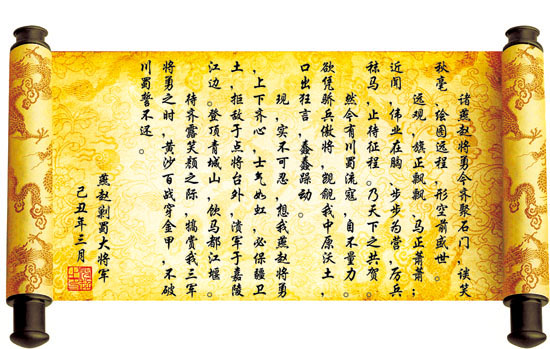 诸燕赵将勇令齐聚石门，谈笑
秋毫，绘图远程，形空前盛世。
远观，旗正飘飘，马正萧萧；
近闻，伟业在胸，步步为营，厉兵
秣马，止待征程。乃天下之共贺。
然今有川蜀流寇，自不量力。
欲凭骄兵傲将，觊觎我中原沃土，
口出狂言，蠢蠢躁动。
现，实不可忍，想我燕赵将勇
，上下齐心，士气如虹，必保疆卫
土，拒敌于点将台外，溃军于嘉陵
江边。登顶青城山，饮马都江堰。
待齐露笑颜之际，犒赏我三军
将勇之时，黄沙百战穿金甲，不破
川蜀誓不还。
燕赵剿蜀大将军
己丑年三月